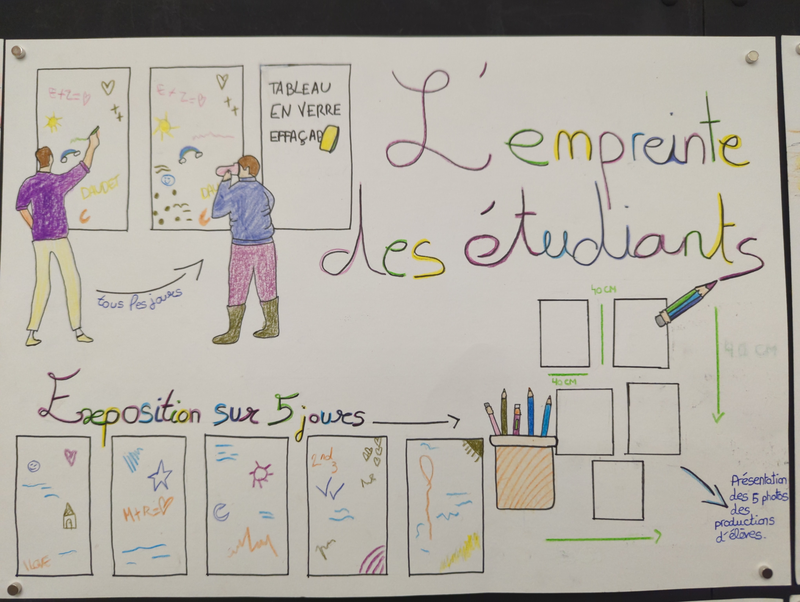 L'empreinte
des étudiants
E+Z=
E+Z=
TABLEAU
EN VERRE
EFFAÇAB
DAUDET
DAU
tous les jours
40 CM
40 CM
40 CM
Exeposition sur 5 jours
M+R=
2nd
3
Présentation
des 5 photos
des
productions
d'élèves.